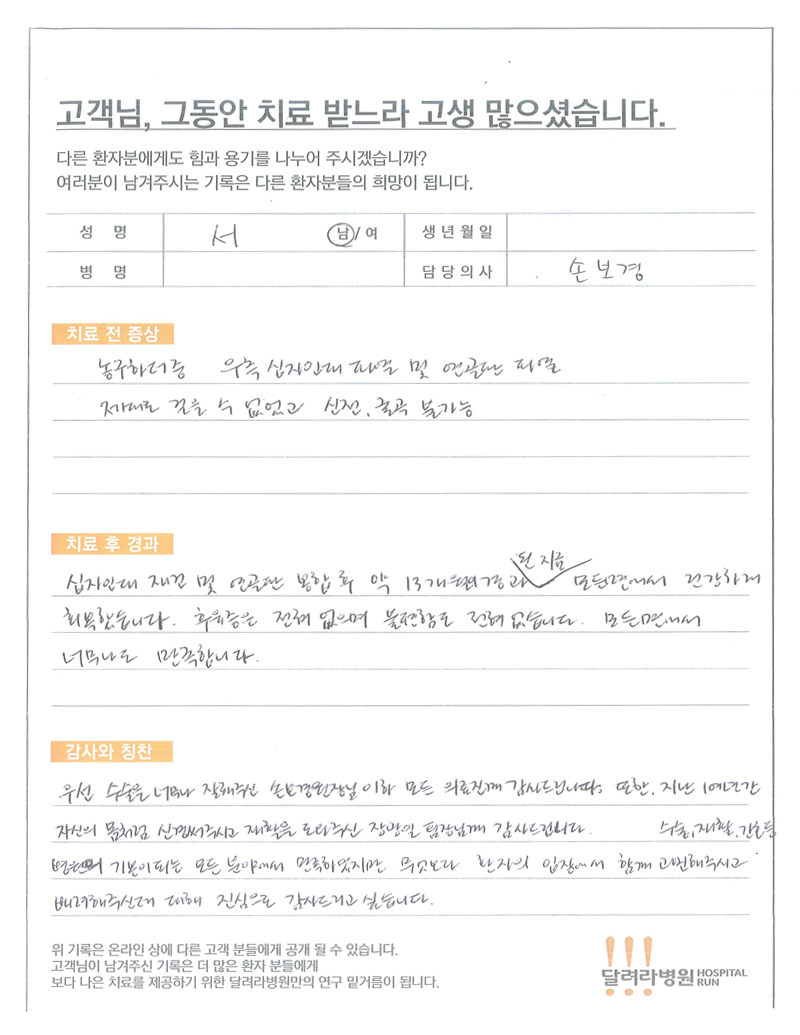 고객님, 그동안 치료 받느라 고생 많으셨습니다.
다른 환자분에게도 힘과 용기를 나누어 주시겠습니까?
여러분이 남겨주시는 기록은 다른 환자분들의 희망이 됩니다.
성 명 서 남/여 생년월일
병 명 담당의사 손보경
치료 전 증상
농구하더중 우측 십자인대 파열 및 연골판 파열
제대로 걸을 수 없었고 신전, 굴곡 불가능
치료 후 경과
된 지금
십자인대 재건 및 연골판 봉합 후 약 13개월 경과 모든면에서 건강하게
회복했습니다. 후유증은 전혀 없으며 불편함도 전혀 없습니다. 모든면에서
너무나도 만족합니다.
감사와 칭찬
우선 수술을 너무나 잘해주신 손보경원장님 이하 모든 의료진께 감사드립니다. 또한, 지난 1여년간
자신의 몸처럼 신경써주시고 재활을 도와주신 장광일 팀장님께 감사드립니다. 수술, 재활, 간호등
병원의 기본이되는 모든 분야에서 만족하였지만 무엇보다 환자의 입장에서 함께 고민해주시고
배려해주신데 대해 진심으로 감사드리고 싶습니다.
위 기록은 온라인 상에 다른 고객 분들에게 공개 될 수 있습니다.
고객님이 남겨주신 기록은 더 많은 환자 분들에게
보다 나은 치료를 제공하기 위한 달려라병원만의 연구 밑거름이 됩니다.
!!!
달려라병원 HOSPITAL RUN